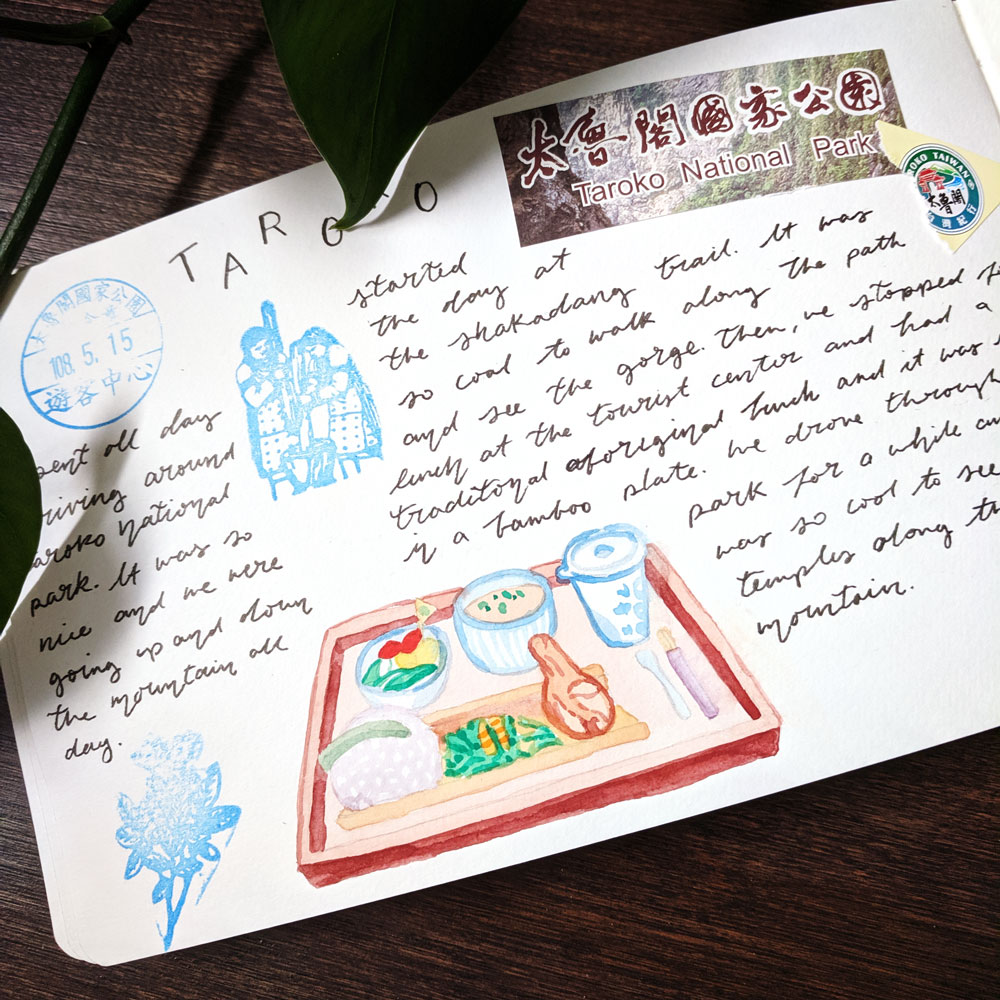 TAROKO
太魯閣國家公園
Taroko National Park
TAIWAN
太魯閣
太魯閣國家公園
108. 5. 15
遊客中心
spent all day
driving around
Taroko National
park. It was so
nice and we were
going up and down
the mountain all
day.
started
the day at
the shakadang trail. It was
so cool to walk along the path
and see the gorge. Then, we stopped
lunch at the tourist center and had a
traditional aboriginal lunch and it was
in a bamboo plate. We drove through
park for a while
was so cool to see
temples along
mountain.